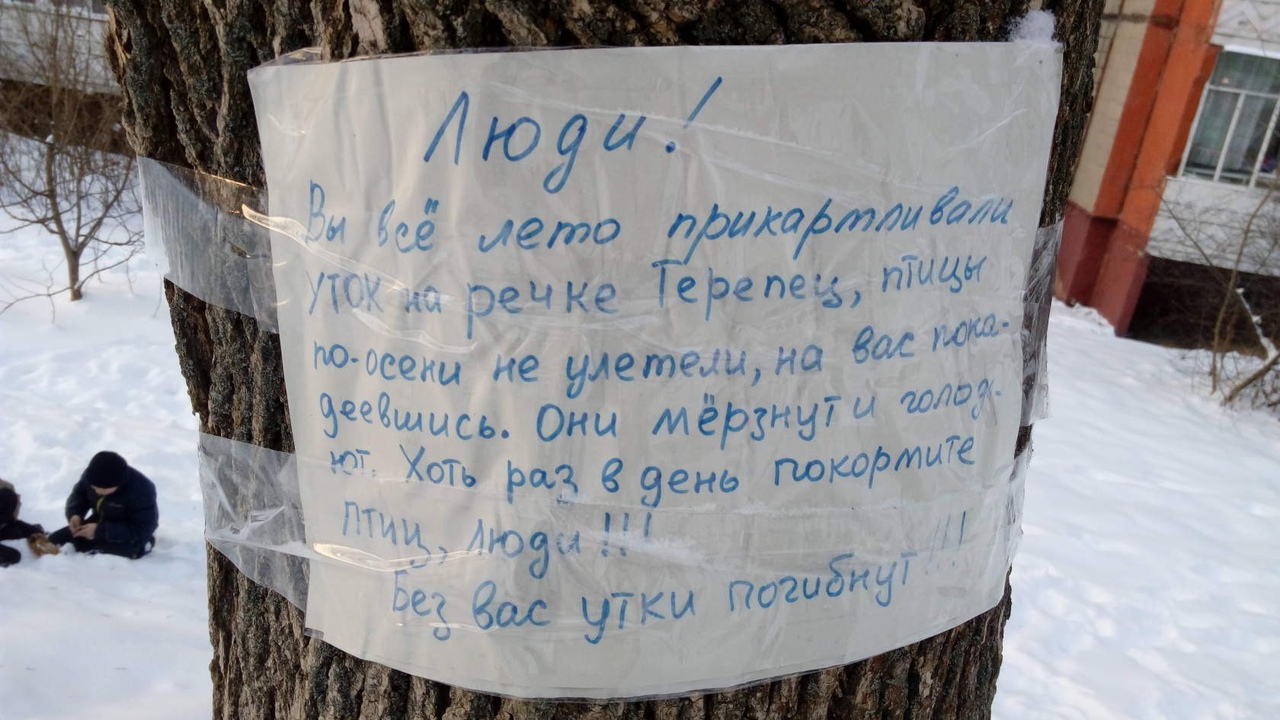 Люди!
Вы всё лето прикартливали
уток на речке Терепец, птицы
по-осени не улетели, на вас пока-
деевшись. Они мёрзнут и голод-
ют. Хоть раз в день покормите
птиц, люди!!!
Без вас утки погибнут!!!